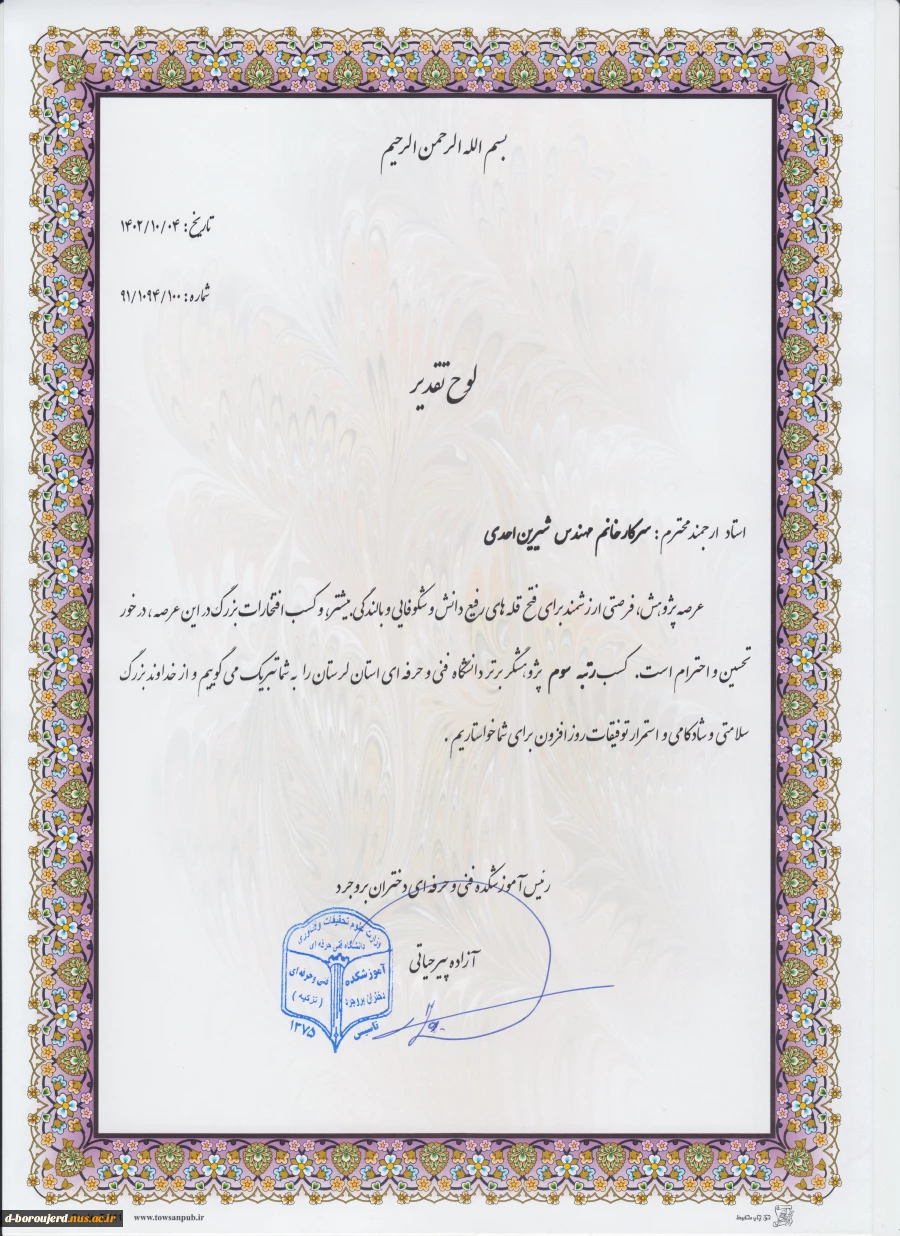 بسم الله الرحمن الرحیم
تاریخ: ۱۴۰۲/۱۰/۰۴
شماره: ۹۱/۱۰۹۴/۱۰۰
لوح تقدیر
استاد ارجمند محترم: سرکار خانم مهندس شیرین احدی
عرصه پژوهش، فرصتی ارزشمند برای فتح قله های رفیع دانش و شکوفایی و بالندگی بیشتر، و کسب افتخارات بزرگ در این عرصه، در خور
تحسین و احترام است. کسب رتبه سوم پژوهشگر برتر دانشگاه فنی و حرفه ای استان لرستان را به شما تبریک می گوییم و از خداوند بزرگ
سلامتی و شادکامی و استمرار توفیقات روز افزون برای شما خواستاریم.
رئیس آموزشکده فنی و حرفه ای دختران بروجرد
آزاده پیرحیاتی
وزارت علوم تحقیقات و فناوری
دانشگاه فنی حرفه ای
آموزشکده فنی و حرفه ای
دختران بروجرد (تزکیه)
تاسیس ۱۳۷۵
d-boroujerd.nus.ac.ir
www.towsanpub.ir
حق چاپ محفوظ